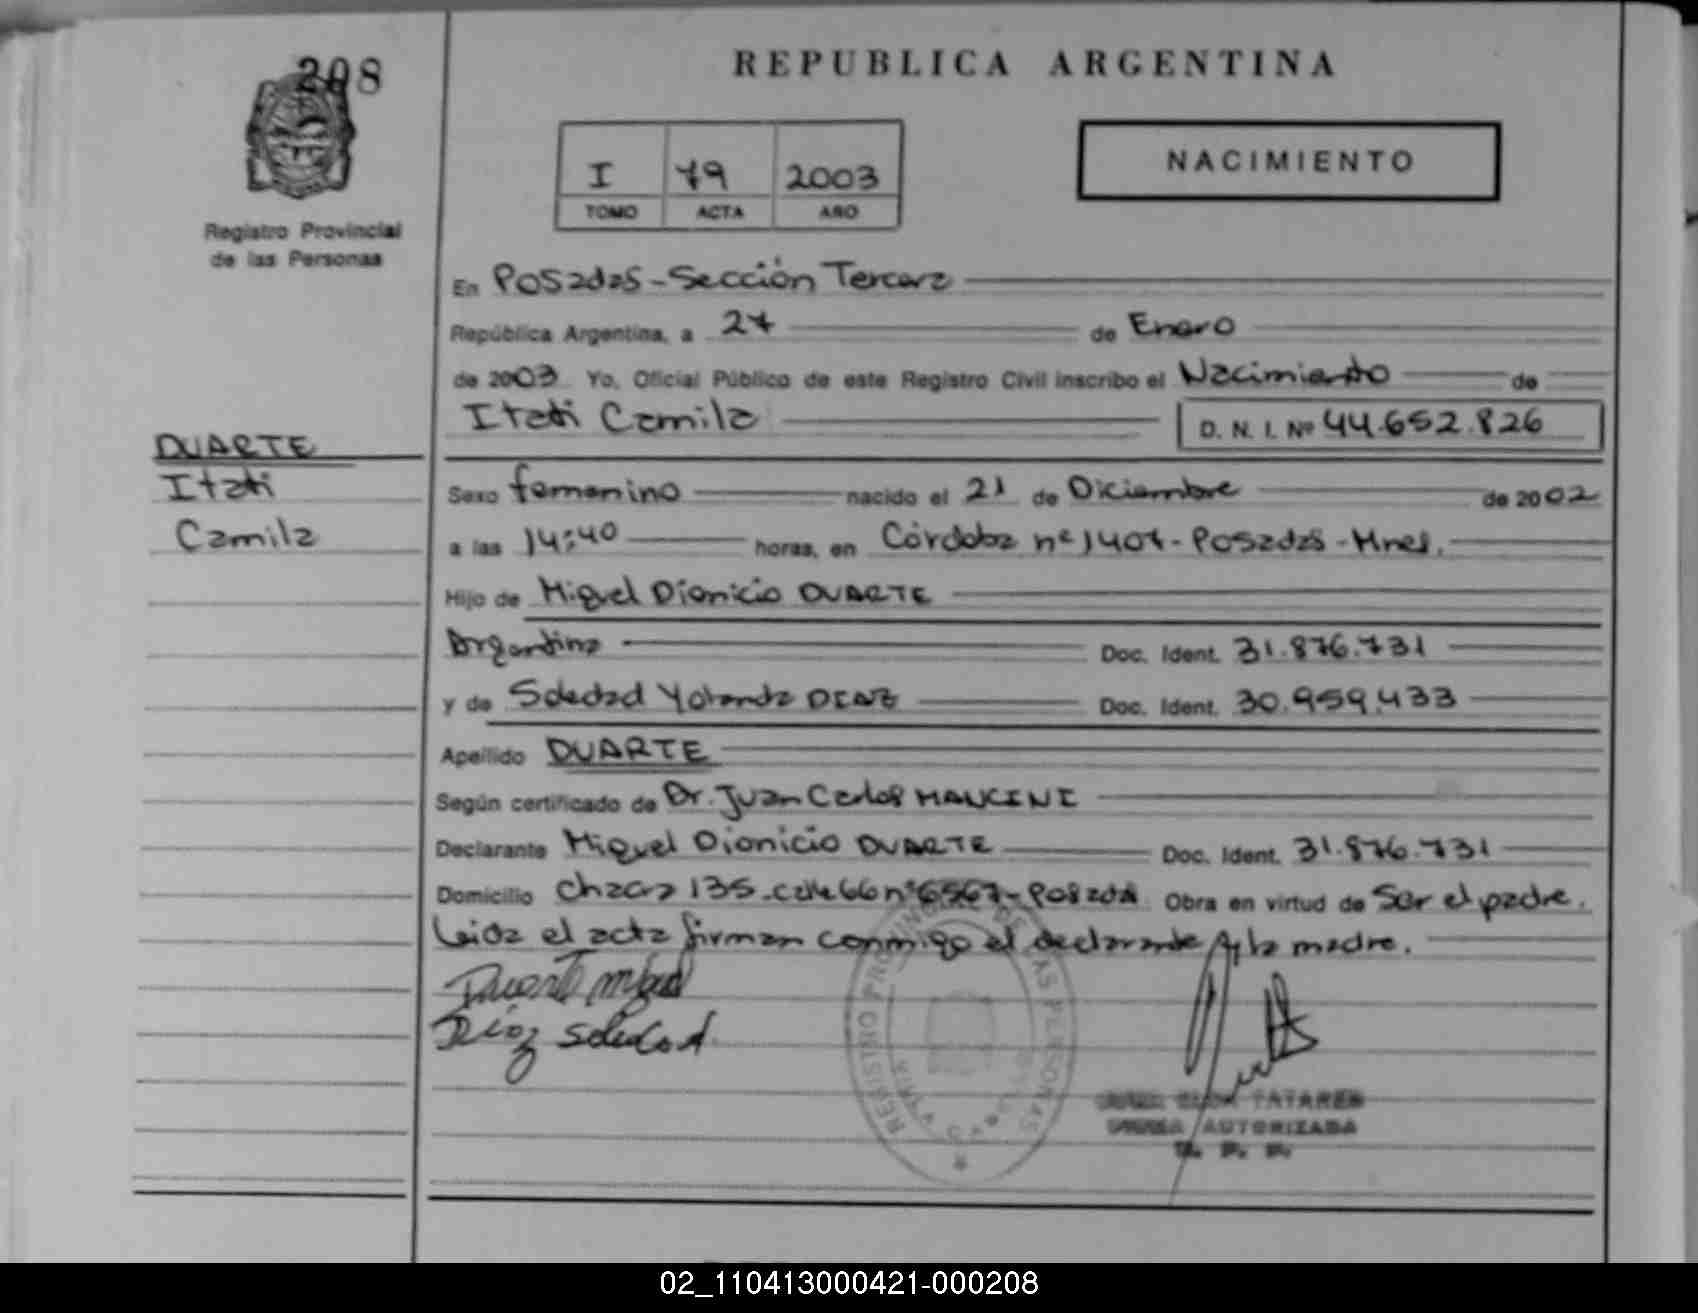 208
REPUBLICA ARGENTINA
I 79 2003
TOMO ACTA AÑO
NACIMIENTO
Registro Provincial
de las Personas
En Posadas - Sección Tercera
República Argentina, a 27 de Enero
de 2003 Yo, Oficial Público de este Registro Civil inscribo el Nacimiento de
Itati Camila D. N. I. Nº 44.652.826
DUARTE
Itati
Camila
Sexo femenino nacido el 21 de Diciembre de 2002
a las 14:40 horas, en Córdoba nº 1407 - Posadas - Mnes.
Hijo de Miguel Dionicio DUARTE
Argentina Doc. Ident. 31.876.731
y de Soledad Yolanda DIAZ Doc. Ident. 30.959.433
Apellido DUARTE
Según certificado de Dr. Juan Carlos MANCINI
Declarante Miguel Dionicio DUARTE Doc. Ident. 31.876.731
Domicilio Chacra 135 - calle 66 nº 6567 - Posadas Obra en virtud de Ser el padre.
Leida el acta firman conmigo el declarante y la madre.
Duarte Miguel
Diaz Soledad
REGISTRO PROVINCIAL DE LAS PERSONAS
TATAREN
FIRMA AUTORIZADA
R. P. P.
02_110413000421-000208